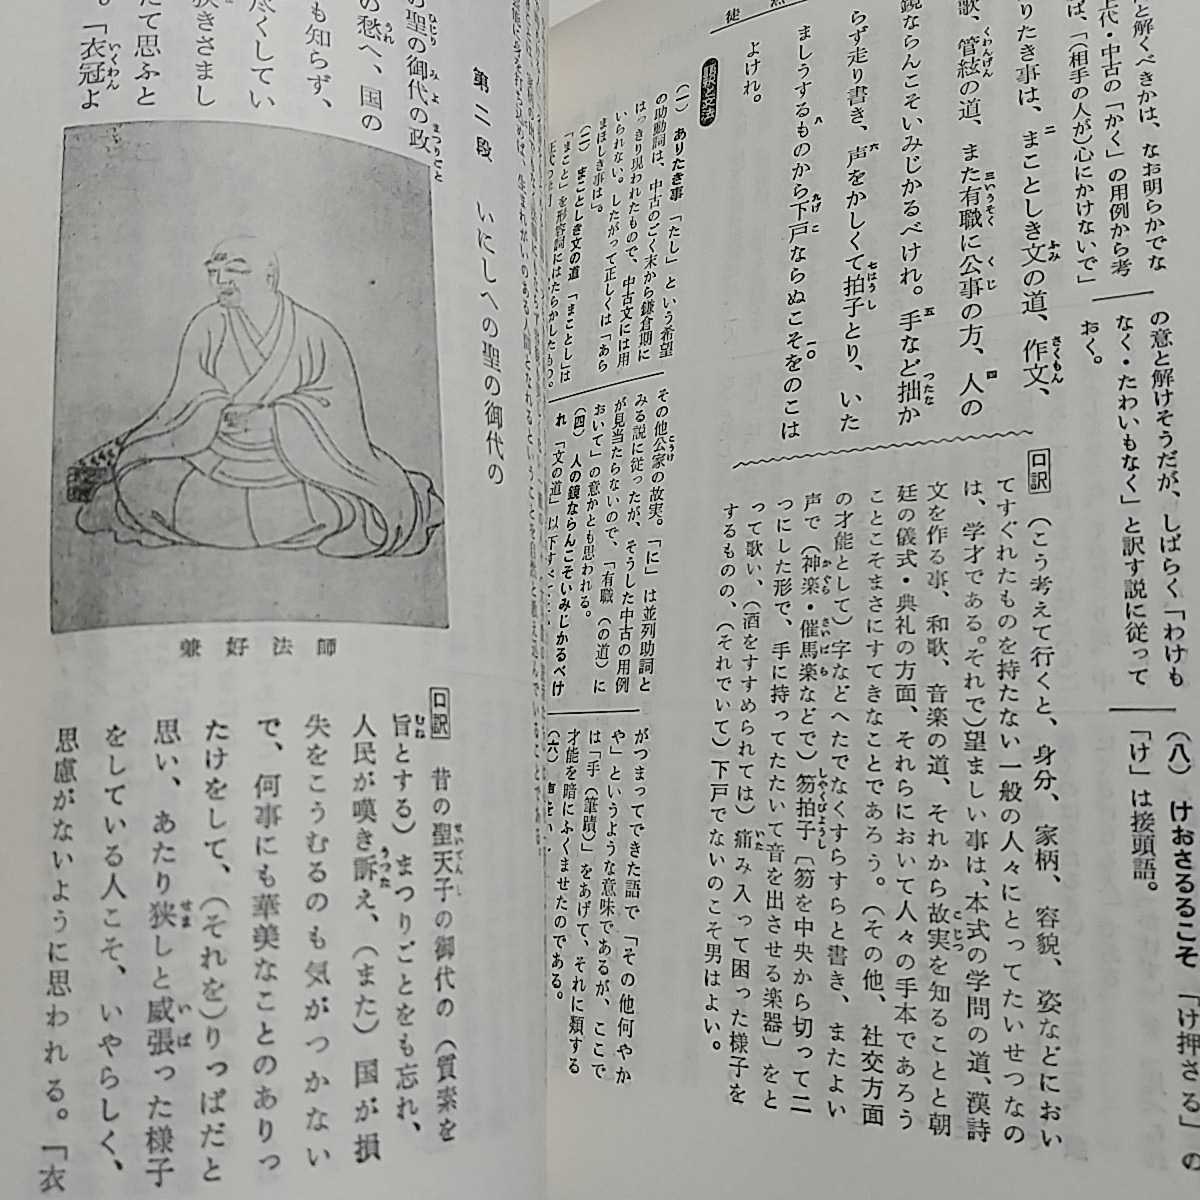 徒
と解くべきかは、なお明らかでな
上代・中古の「かく」の用例から考
ば、「(相手の人が)心にかけないで」
の意と解けそうだが、しばらく「わけも
なく・たわいもなく」と訳す説に従って
おく。
(八) けおさるるこそ 「け押さる」の
「け」は接頭語。
りたき事は、まことしき文の道、作文、
歌、管絃の道、また有職に公事の方、人の
鏡ならんこそいみじかるべけれ。手など拙か
らず走り書き、声をかしくて拍子とり、いた
ましうするものから下戸ならぬこそをのこは
よけれ。
口訳 (こう考えて行くと、身分、家柄、容貌、姿などにおい
てすぐれたものを持たない一般の人々にとってたいせつなの
は、学才である。それで)望ましい事は、本式の学問の道、漢詩
文を作る事、和歌、音楽の道、それから故実を知ることと朝
廷の儀式・典礼の方面、それらにおいて人々の手本であろう
ことこそまさにすてきなことであろう。(その他、社交方面
の才能として)字などへたでなくすらすらと書き、またよい
声で(神楽・催馬楽などで)笏拍子〔笏を中央から切って二
つにした形で、手に持ってたたいて音を出させる楽器〕をと
って歌い、(酒をすすめられては)痛み入って困った様子を
するものの、(それでいて)下戸でないのこそ男はよい。
語釈と文法
(一) ありたき事 「たし」という希望
の助動詞は、中古のごく末から鎌倉期に
はっきり現われたもので、中古文には用
いられない。したがって正しくは「あら
まほしき事は」。
(二) まことしき文の道 「まことし」は
「まこと」を形容詞にはたらかしたもの。
その他公家の故実。「に」は並列助詞と
みる説に従ったが、そうした中古の用例
が見当たらないので、「有職(の道)に
おいて」の意かとも思われる。
(四) 人の鏡ならんこそいみじかるべけ
れ 「文の道」以下すべて
がつまってできた語で「その他何やか
や」というような意味であるが、ここで
は「手(筆蹟)」をあげて、それに類する
才能を暗にふくませたのである。
(六) 声を
第二段 いにしへの聖の御代の
の聖の御代の政
の愁へ、国の
も知らず、
尽くしてい
狭きさまし
たて思ふと
。「衣冠よ
兼好法師
口訳 昔の聖天子の御代の(質素を
旨とする)まつりごとをも忘れ、
人民が嘆き訴え、(また)国が損
失をこうむるのも気がつかない
で、何事にも華美なことのありっ
たけをして、(それを)りっぱだと
思い、あたり狭しと威張った様子
をしている人こそ、いやらしく、
思慮がないように思われる。「衣